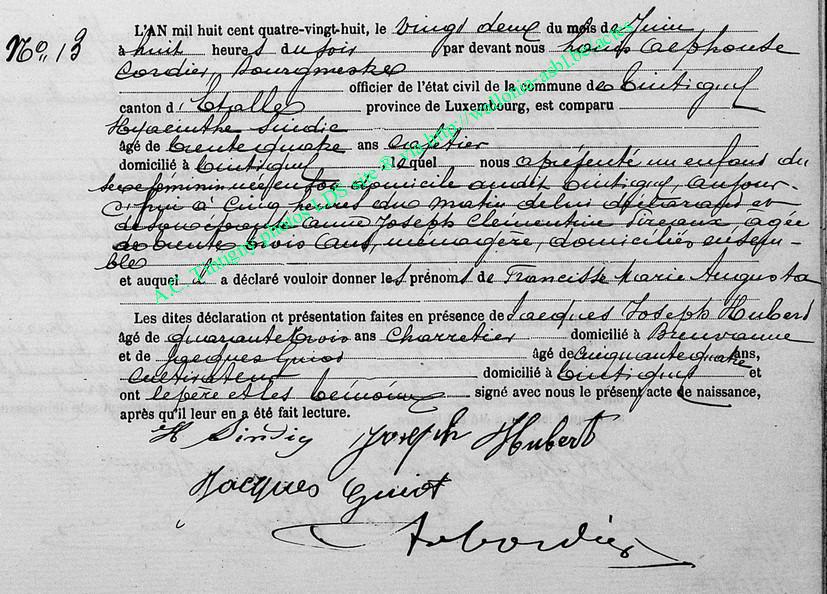 No. 13
L'AN mil huit cent quatre-vingt-huit, le vingt deux du mois de Juin
à huit heures du soir par devant nous Alphonse
Cordier, bourgmestre
officier de l'état civil de la commune de Tintigny
canton d'Etalle province de Luxembourg, est comparu
Hyacinthe Sindic
âgé de trente quatre ans cafetier
domicilié à Tintigny, lequel nous a présenté un enfant du
sexe féminin née en son domicile audit Tintigny, aujour-
d'hui à cinq heures du matin de lui déclarant et
de son épouse Anne Joseph Clémentine, agée
de trente trois ans, ménagère, domiciliés ensem-
ble
et auquel il a déclaré vouloir donner les prénoms de Marie Augusta
Les dites déclaration et présentation faites en présence de Jacques Joseph Hubert
âgé de quarante trois ans charretier domicilié à Breuvanne
et de Jacques Guiot âgé de cinquante quatre ans,
cultivateur domicilié à Tintigny et
ont le père et les témoins signé avec nous le présent acte de naissance,
après qu'il leur en a été fait lecture.
H Sindic Joseph Hubert
Jacques Guiot
A Cordier
A.C. Tintigny photos LDS site ® via http://wallonia-asbl.be/actes